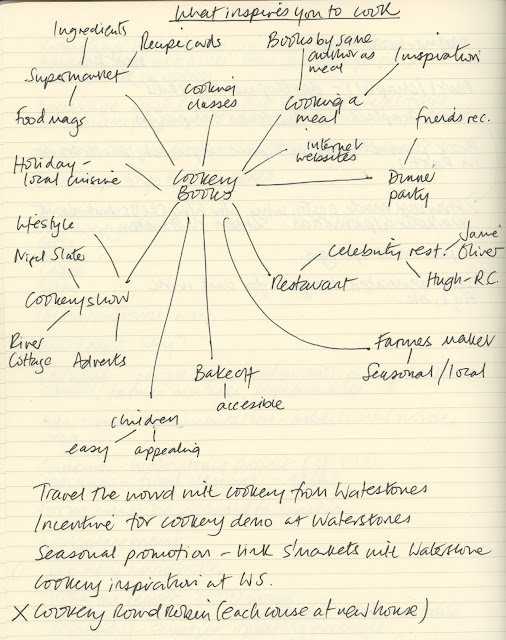 What inspires you to cook
Ingredients
Recipe cards
Supermarket
Food mags
Cooking
classes
Books by same
author as
meal
Inspiration
Cooking a
meal
internet
websites
friends rec.
Dinner
party
Holiday -
local cuisine
Cookery
Books
Lifestyle
Nigel Slater
Cookery show
River
Cottage
Adverts
Restaurant
Celebrity rest.
Jamie
Oliver
Hugh - R.C.
Farmers market
Seasonal / local
Bakeoff
accesible
children
easy
appealing
Travel the world with cookery from Waterstones
Incentive for cookery demo at Waterstones
Seasonal promotion - link s'markets with Waterstone
Cookery inspiration at WS.
X Cookery Round Robin (each course at new house)